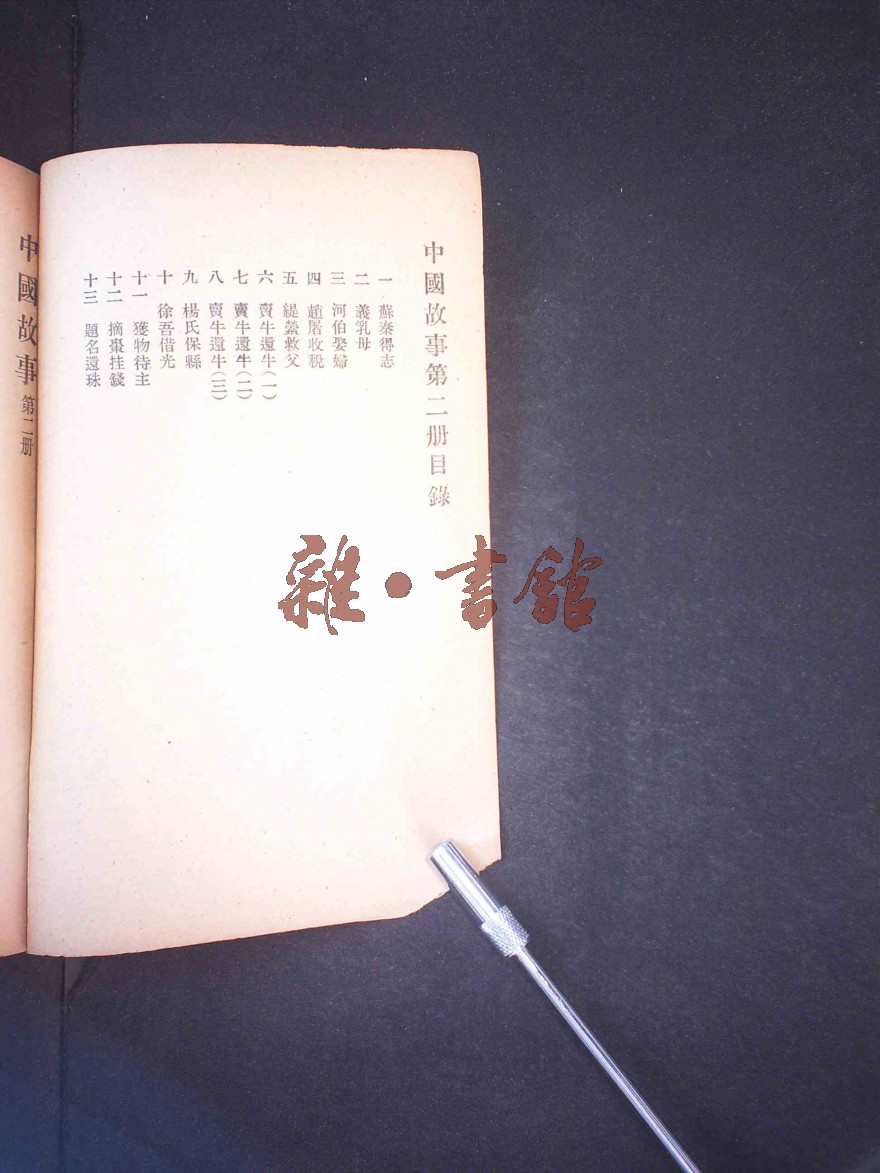 中國故事第二册目錄
一 蘇秦得志
二 義乳母
三 河伯娶婦
四 趙屠收稅
五 緹縈救父
六 賣牛還牛(一)
七 賣牛還牛(二)
八 賣牛還牛(三)
九 楊氏保縣
十 徐吾借光
十一 獲物待主
十二 摘棗挂錢
十三 題名還珠
中國故事 第二册
雜·書館